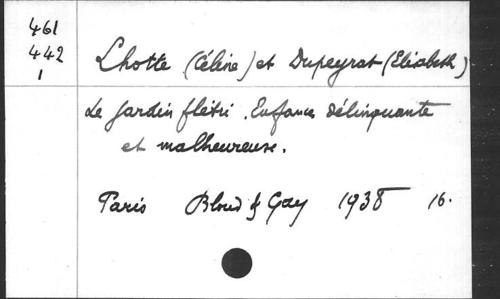 461
442
1
Lhotte (Céline) et Dupeyrat (Elisabeth)
Le Jardin flétri. Enfance délinquante
et malheureuse.
Paris Bloud & Gay 1938 16.